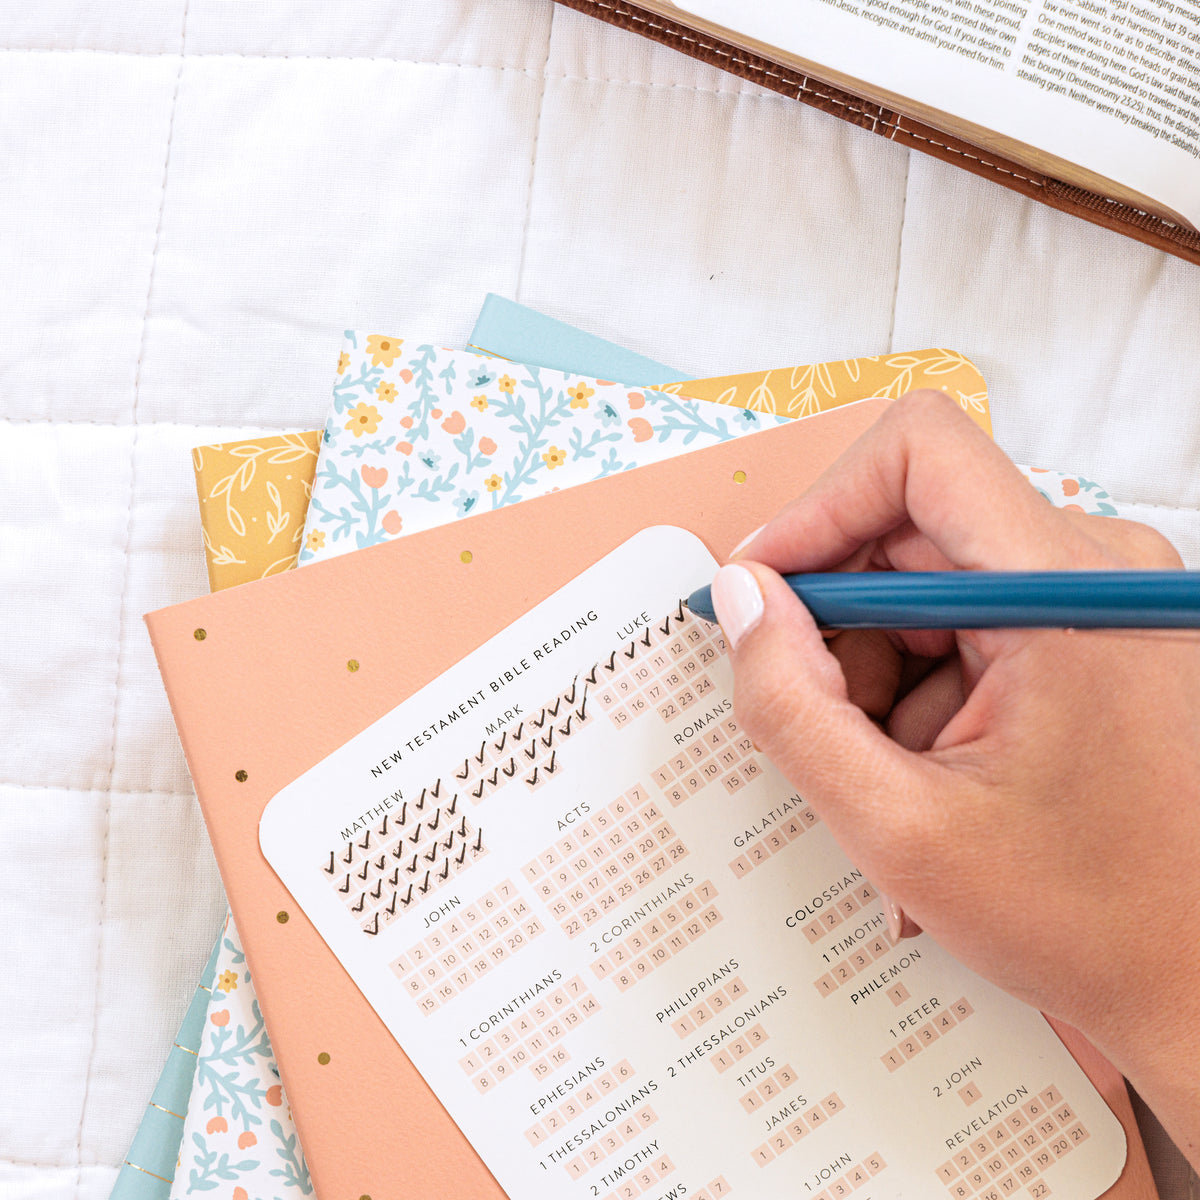 pointing
with these proud,
people who sensed their own
good enough for God. If you desire to
with Jesus, recognize and admit your need for him.
legal tradition had 39 cat
Sabbath, and harvesting was one
law even went so far as to describe differen
One method was to rub the heads of grain be
disciples were doing here. God's law said that
edges of their fields unplowed so travelers and the
this bounty (Deuteronomy 23:25); thus, the disciples
stealing grain. Neither were they breaking the Sabbath by
NEW TESTAMENT BIBLE READING
MATTHEW
MARK
LUKE
13
8 9 10 11 12
15 16 17 18 19 20
22 23 24
JOHN
1 2 3 4 5 6 7
8 9 10 11 12 13 14
15 16 17 18 19 20 21
ACTS
1 2 3 4 5 6 7
8 9 10 11 12 13 14
15 16 17 18 19 20 21
22 23 24 25 26 27 28
ROMANS
1 2 3 4 5
8 9 10 11 12
15 16
1 CORINTHIANS
1 2 3 4 5 6 7
8 9 10 11 12 13 14
15 16
2 CORINTHIANS
1 2 3 4 5 6 7
8 9 10 11 12 13
GALATIAN
1 2 3 4 5
EPHESIANS
1 2 3 4 5 6
PHILIPPIANS
1 2 3 4
COLOSSIAN
1 2 3 4
1 THESSALONIANS
1 2 3 4 5
2 THESSALONIANS
1 2 3
1 TIMOTHY
1 2 3 4
2 TIMOTHY
1 2 3 4
TITUS
1 2 3
PHILEMON
1
JAMES
1 2 3 4 5
1 PETER
1 2 3 4 5
1 JOHN
1 2 3 4 5
2 JOHN
1
REVELATION
1 2 3 4 5 6 7
8 9 10 11 12 13 14
15 16 17 18 19 20 21
22